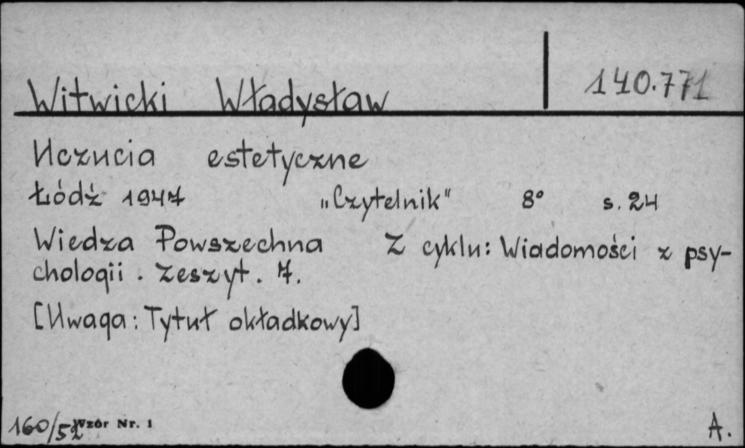 140.771
Witwicki Władysław
Uczucia estetyczne
Łódź 1947 „Czytelnik" 8° s. 24
Wiedza Powszechna Z cyklu: Wiadomości z psy-
chologii. Zeszyt. 7.
[Uwaga: Tytuł okładkowy]
160/52 Wzór Nr. 1 A.